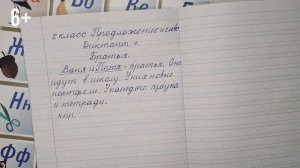 6+
2 класс Предложение и слово
Диктант 1.
Братья.
Ваня и Петя - братья. Они
идут в школу. У них новые
портфели. У каждого азбука
и тетради.